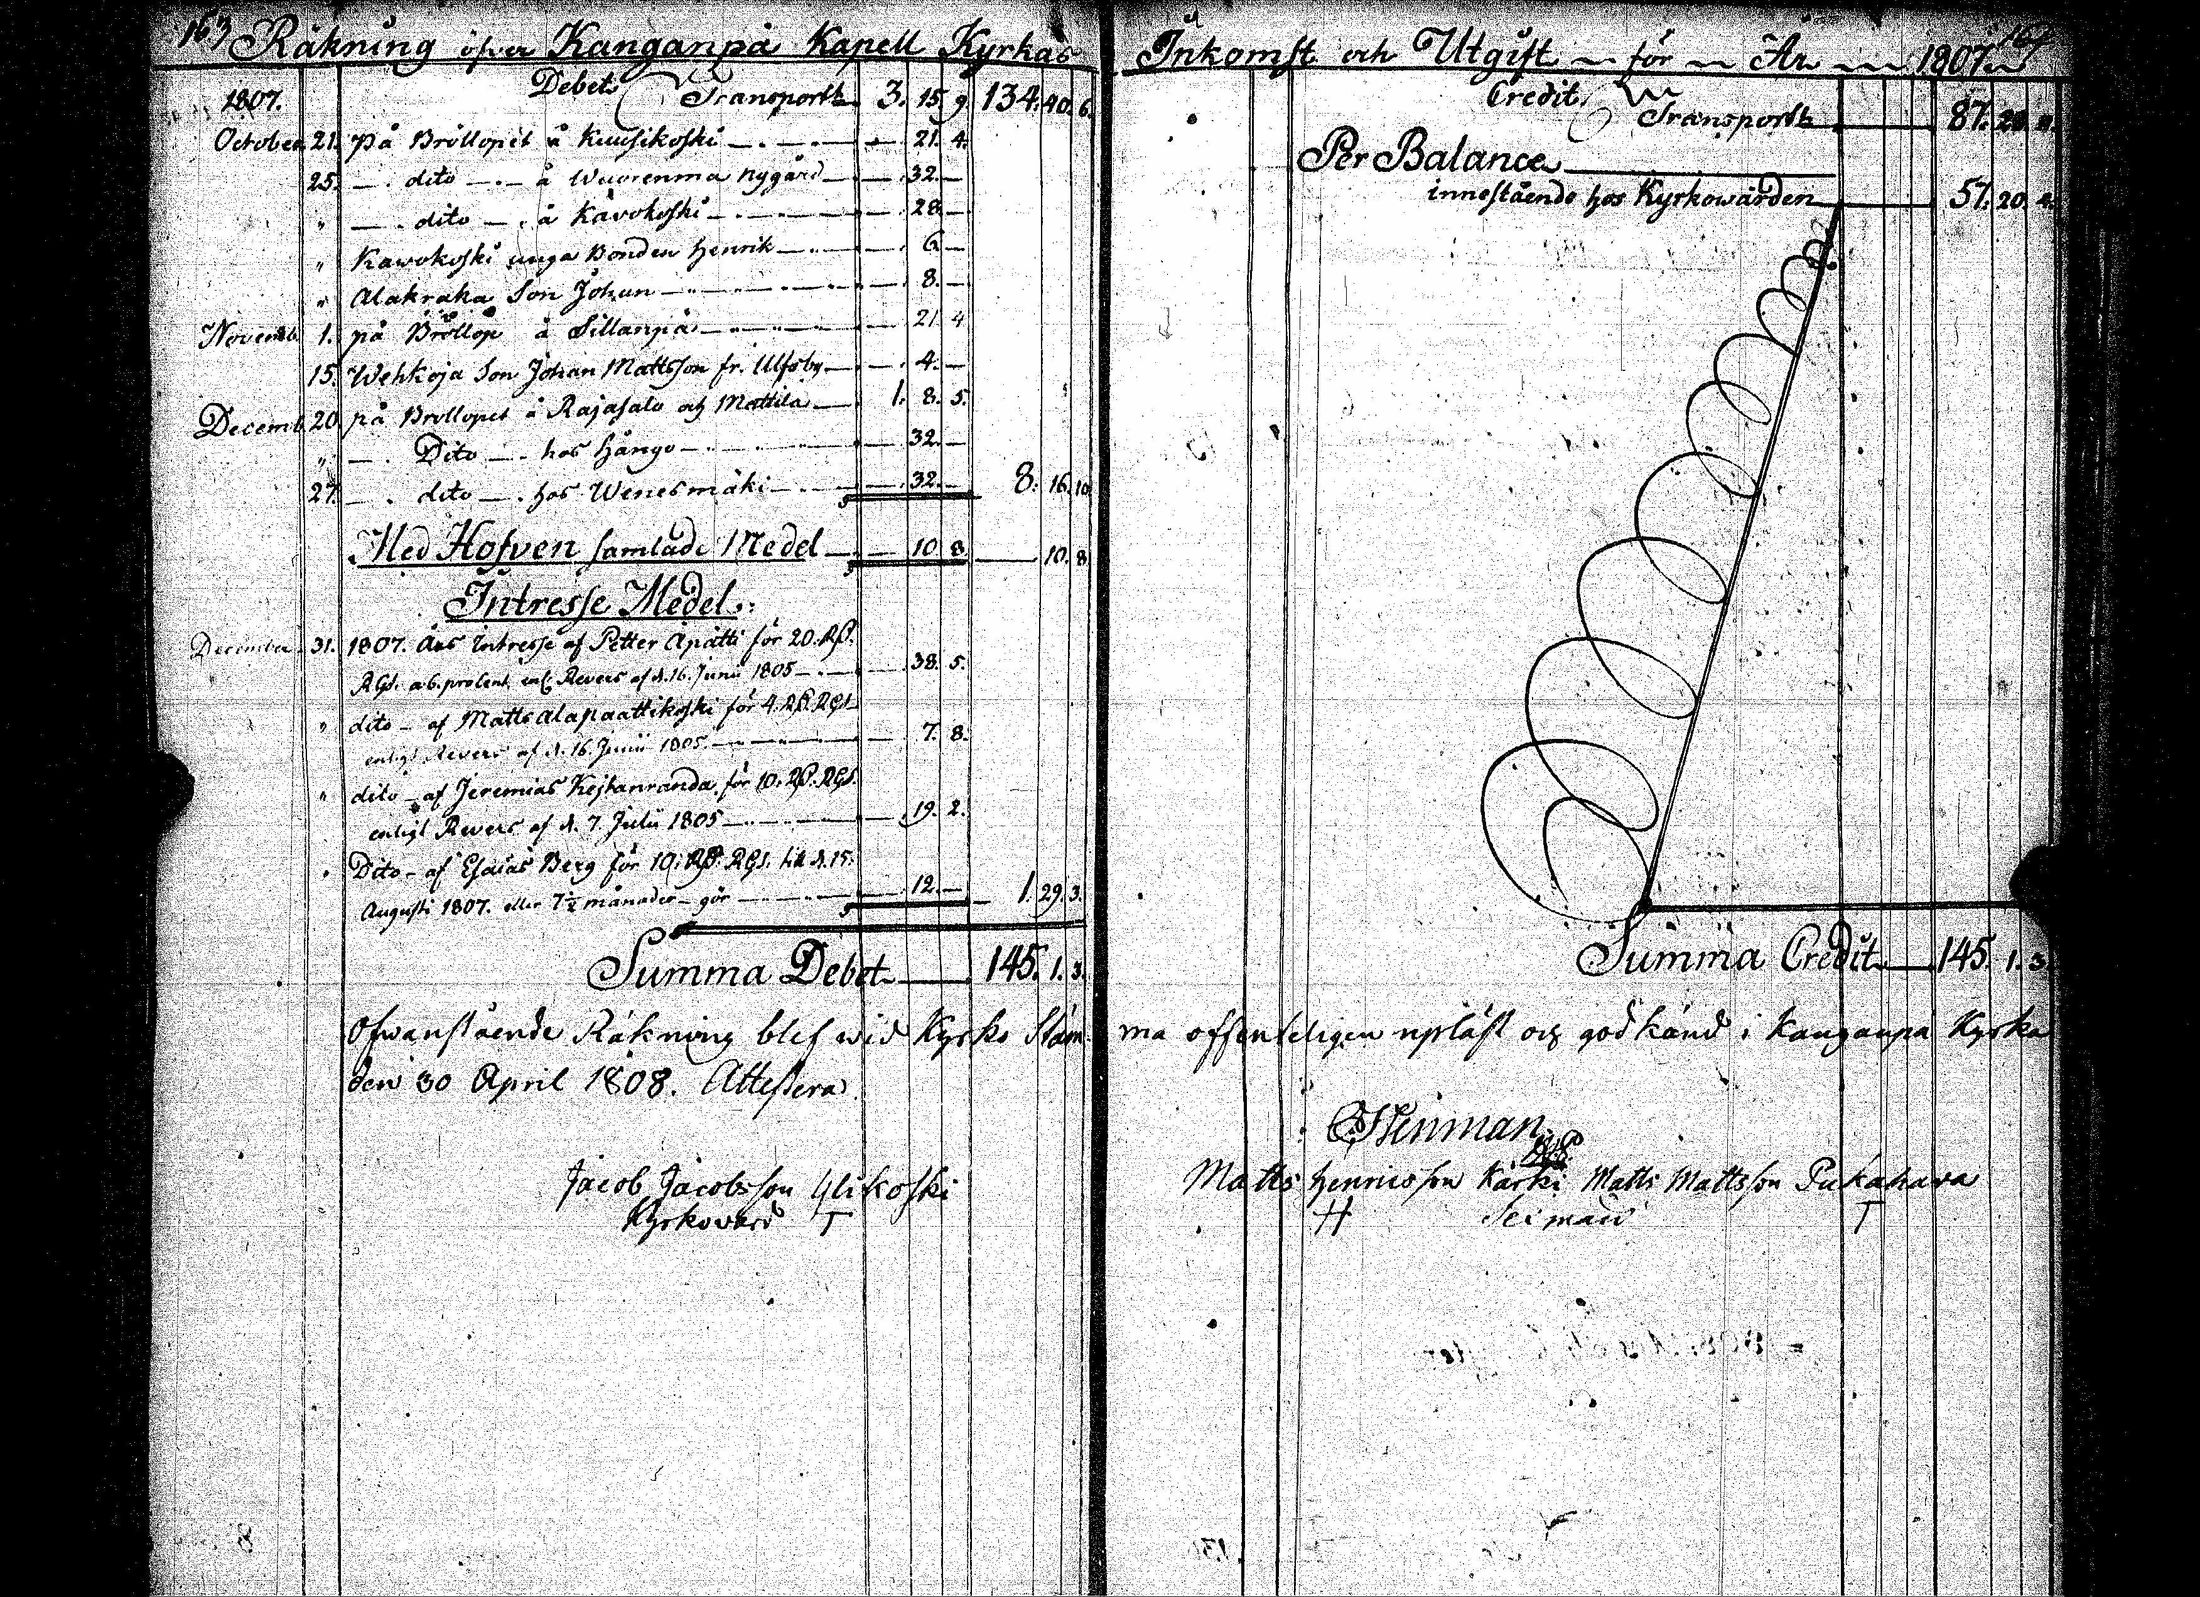 163 Räkning öfver Kanganpä Kapell Kyrkas
1807. Debet Transport 3. 15 9. 134. 40. 6.
October 21. På Bröllopet å Kuusikoski 21. 4.
25. dito å Wuorenma Nygård 32.
" dito å Kavokoski 28
" Kavokoski unga Bonden Henrik 6
" Alakraka Son Johan 8.
Novemb. 1. på Bröllop å Sillanpä 21. 4
15. Wehkoja Son Johan Mattsson fr. Ulfsby 4.
Decemb. 20 på Bröllopet å Rajasalo och Mattila 1. 8. 5.
" Dito hos Hångo 32.
27. dito hos Wenesmäki 32. 8. 16. 10
Med Hofven samlade Medel 10 8. 10. 8
Intresse Medel.
December 31. 1807. Års Intresse af Petter Apatti för 20. RP.
RGs. a 6. procent enl. Revers af d. 16. Junii 1805 38. 5.
" dito af Matts Alapaattikoski för 4. RP. RGs.
enligt Revers af d. 16. Junii 1805. 7. 8.
" dito af Jeremias Kejtanranda för 10. RP. RGs.
enligt Revers af d. 7. Julii 1805 19. 2.
" Dito af Esaias Berg för 10. RP. RGs. til d. 15.
Augusti 1807. eller 7½ månader gör 12. 1. 29. 3.
Summa Debet 145. 1. 3.
Ofwanstående Räkning blef wid Kyrko Stäm
den 30 April 1808. Attestera
Jacob Jacobsson Ylikoski
Kyrkovärd T
Inkomst och Utgift för År 1807
Credit.
Transport 87. 28.
Per Balance
innestående hos Kyrkowärden 57. 20.
Summa Credit 145. 1. 3
ma offenteligen upläst och godkänd i Kangaupä Kyrka
Matts Henricsson Kärki Matts Mattsson Pukahara
H T